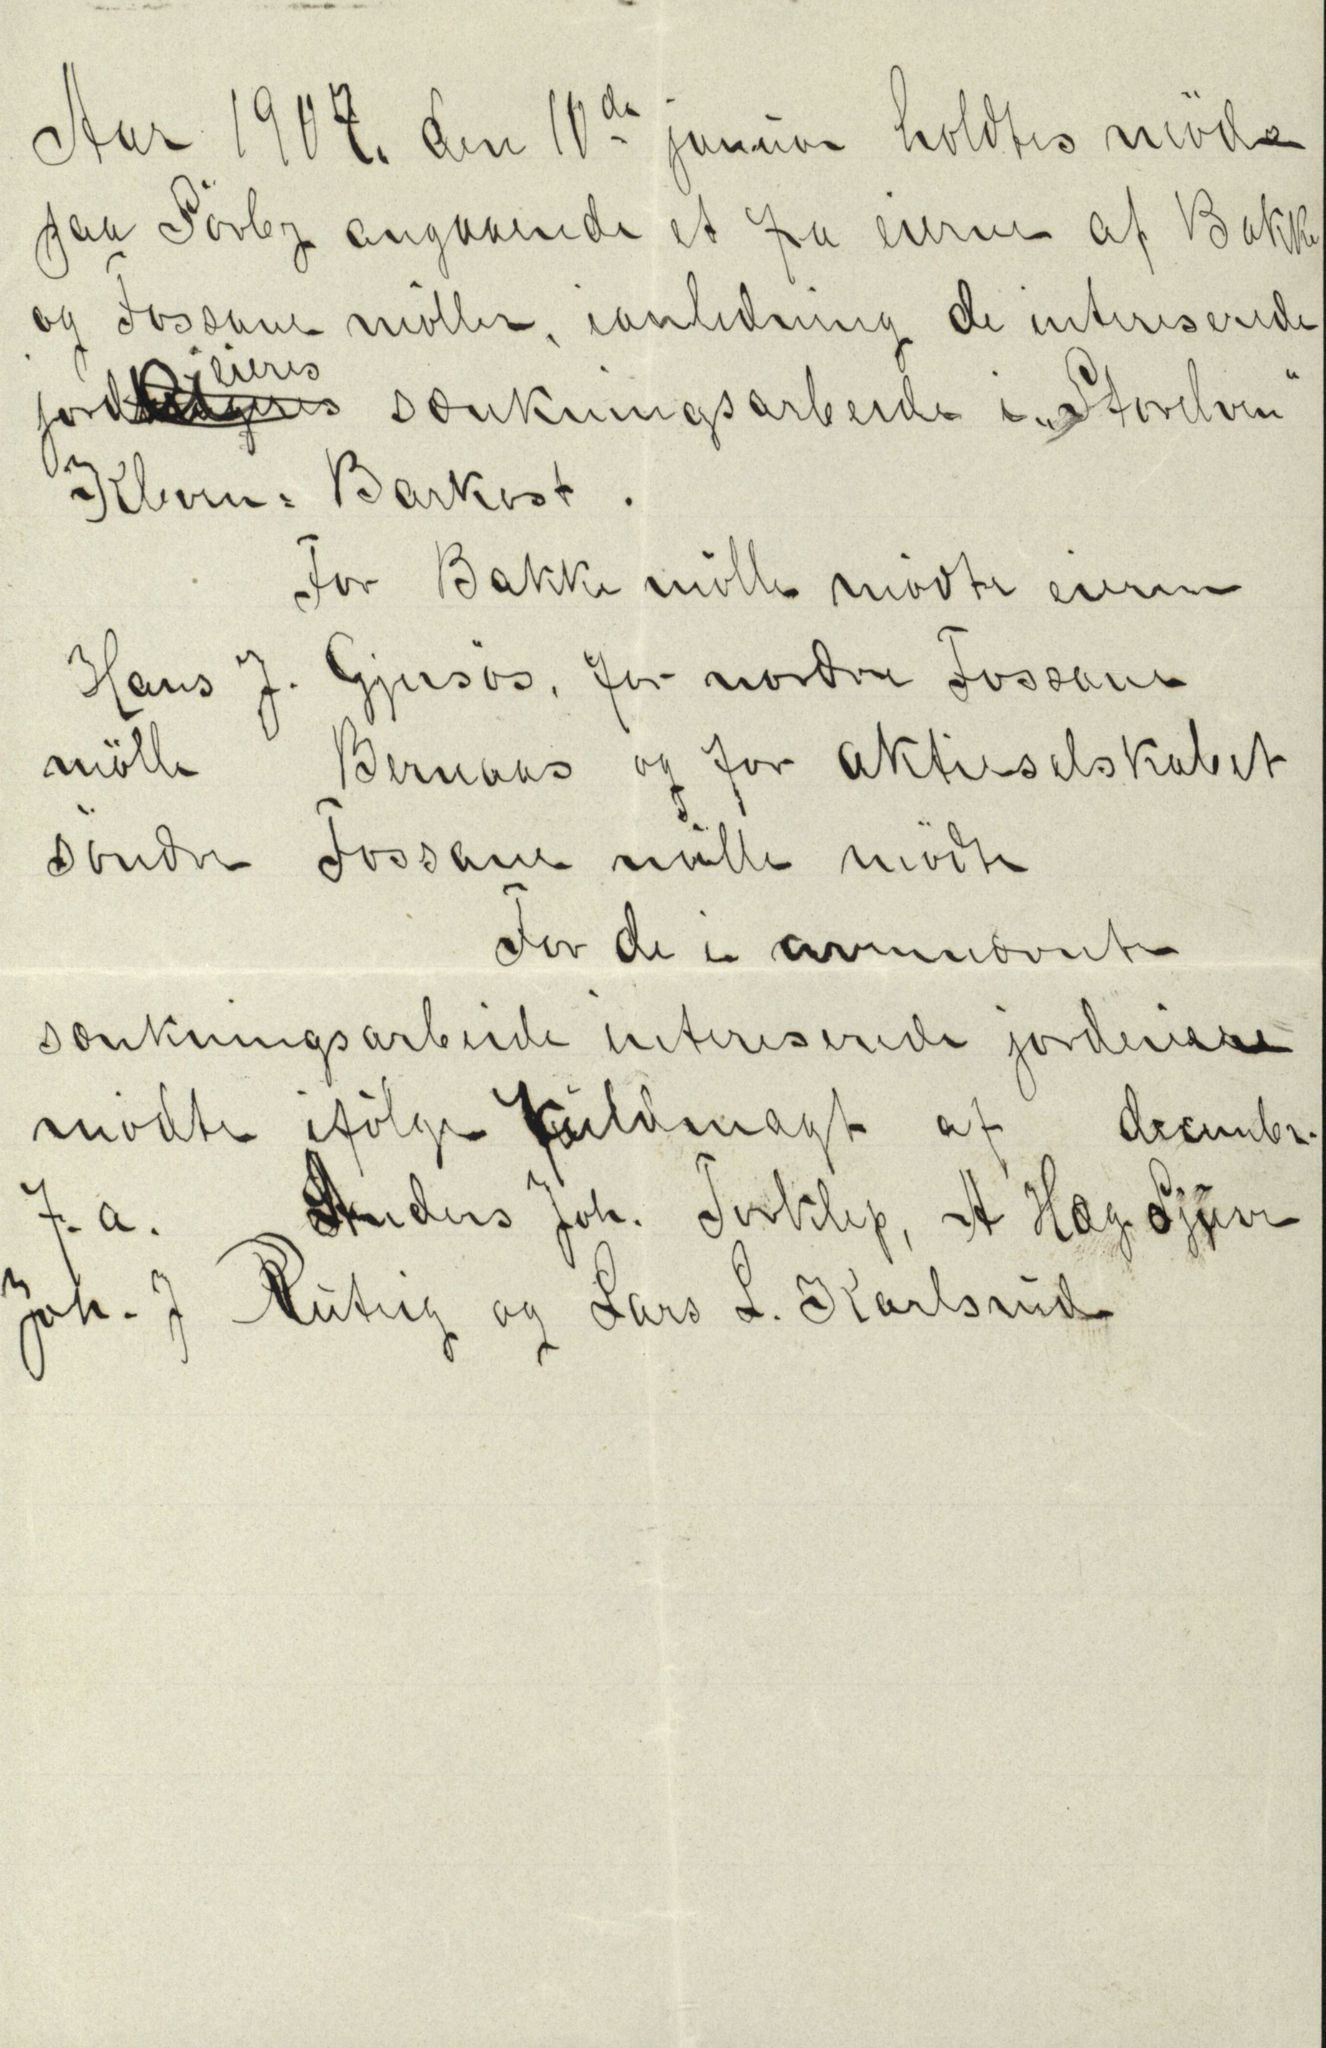 Aar 1907. den 10de januar holdtes möde
paa Sörby angaaende et fra eierne af Bakke
og Fossane möller, ianledning de intereserede
jordeieres sænkningsarbeide i "Storelven"
Kleven = Barkost.
For Bakke mölle mödte eieren
Hans J. Gjersös, for nordre Fossane
mölle Bernaas og for aktieselskabet
söndre Fossane mölle mödte
For de i ovennævnte
sænkningsarbeide intereserede jordeiere
mödte ifölge fuldmagt af decembr.
F. a. Anders Joh. Torklep, A Hæg
Joh. J Rutrig og Lars L. Karlsrud